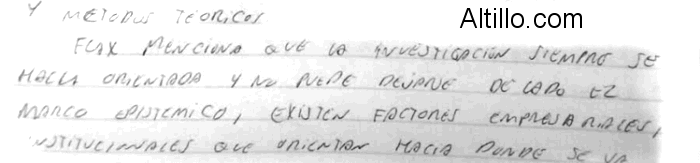 Altillo.com
Y METODOS TEORICOS
FLAX MENCIONA QUE LA INVESTIGACIÓN SIEMPRE SE
HALLA ORIENTADA Y NO PUEDE DEJARSE DE LADO EL
MARCO EPISTEMICO, EXISTEN FACTORES EMPRESARIALES,
INSTITUCIONALES QUE ORIENTAN HACIA DONDE SE VA